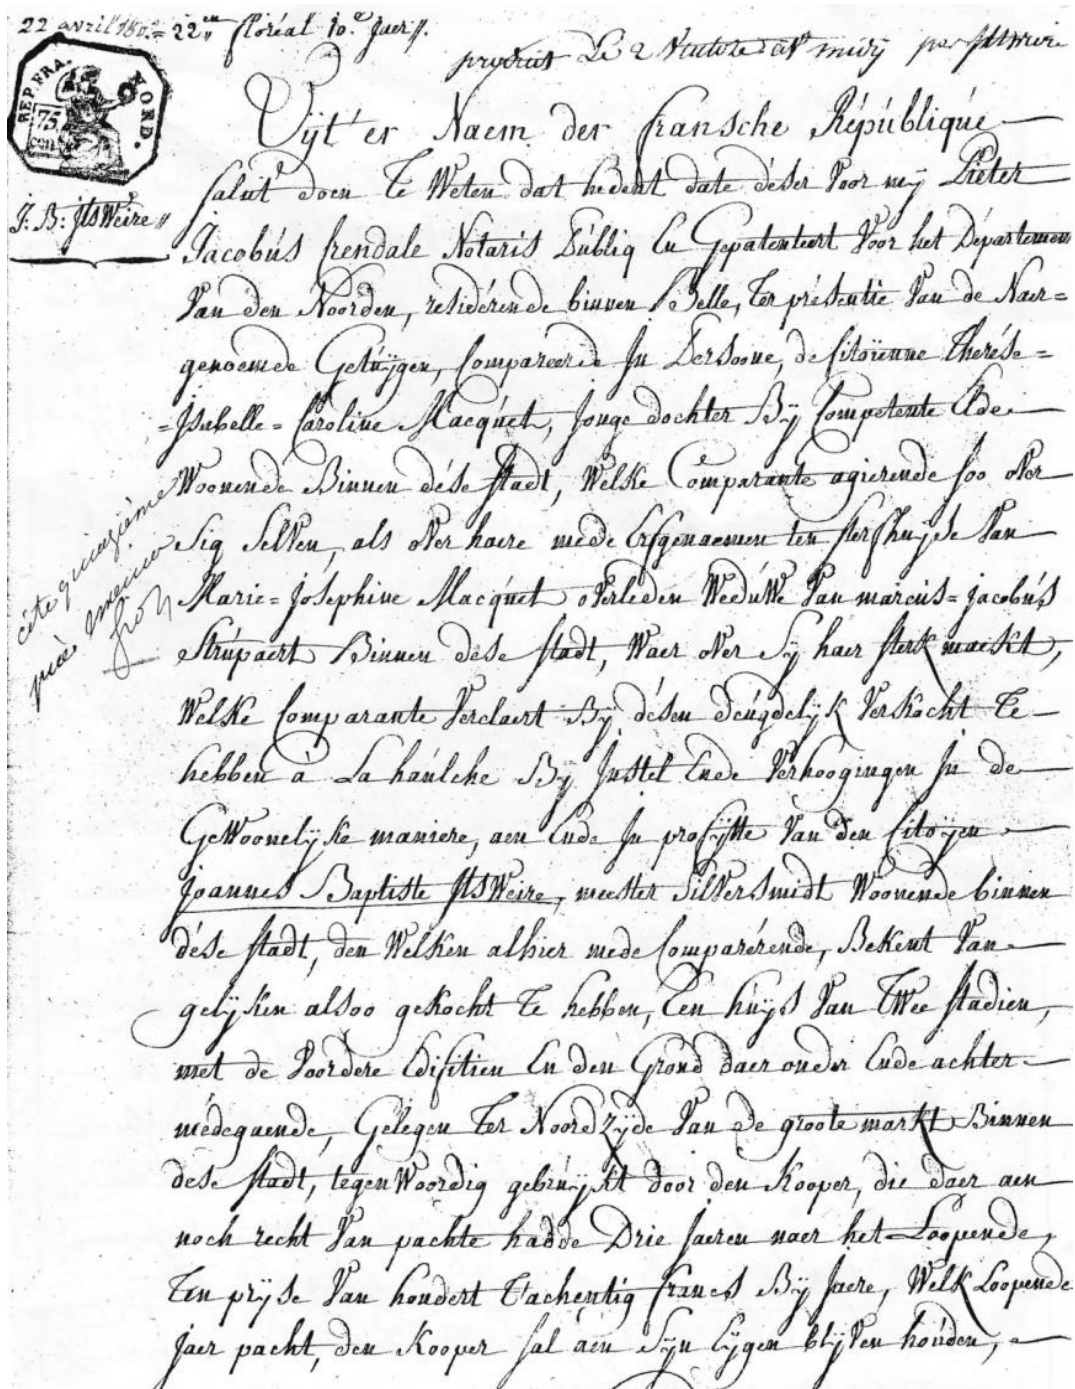 22 avril 180 = 22en floréal 10.e Jaer //.
produit Le 2 midy par JItsweire
REP. FRA. NORD.
75
CEN
J: B: ItsWeire //
Uÿt'er Naem der fransche Républiqué
salút doen Te Weten dat hedent date déser Voor mÿ Pieter
Jacobús frendale Notaris Públiq En Gepatenteert Voor het Départemen
Van den Noorden, residérende binnen Belle, Ter présentie Van de Naer=
genoemde Getúÿgen, Compareerde In Persoone, de Citoÿenne Therése=
=Isabelle=Caroline Macqúet, Jonge dochter Bÿ Competente Elde
Woonende Binnen dése stadt, Welke Comparante agierende soo over
Sig Selven, als over haere mede Erfgenaemen ten sterfhuÿse Van
Marie=Joséphine Macqúet overleden WedúWe Van marcus=jacobús
Strúpaert Binnen dése stadt, Waer over Sÿ haer sterk maekt,
Welke Comparante Verclaert Bÿ désen deúgdelÿk Verkocht Te
hebben à La haúlche Bÿ Instel Ende Verhoogingen In de
GeWoonelÿke maniere, aen Ende In profÿtte Van den Citoÿen
Joannes Baptiste ItsWeire, meester SilverSmidt Woonende binnen
dése stadt, den Welken alhier mede Comparérende, Bekent Van
gelÿken alsoo gekocht Te hebben, Een húÿs Van Twee stadien,
met de Voordere Edifitien En den Grond daer onder Ende achter
médegaende, Gelegen Ter Noordzÿde Van de groote markt Binnen
dese stadt, tegenWoordig gebrúÿkt door den Kooper, die daer aen
noch recht Van pachte hadde Drie Jaeren naer het Loopende,
Ten prÿse Van hondert Tachentig francs Bÿ Jaere, Welk Loopende
Jaer pacht, den Kooper sal aen Sÿn Eÿgen blÿven houden,
côté quinzième
pièce